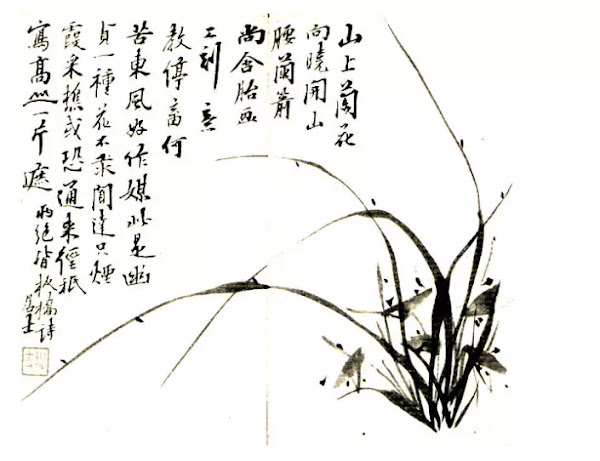 山上蘭花
向曉開山
腰蘭箭
尚含胎画
工刻意
教停蓄何
苦東風好作媒此是幽
貞一種花不求聞達只煙
霞采樵或恐通來徑祇
寫高山一片遮
兩絕皆板橋詩